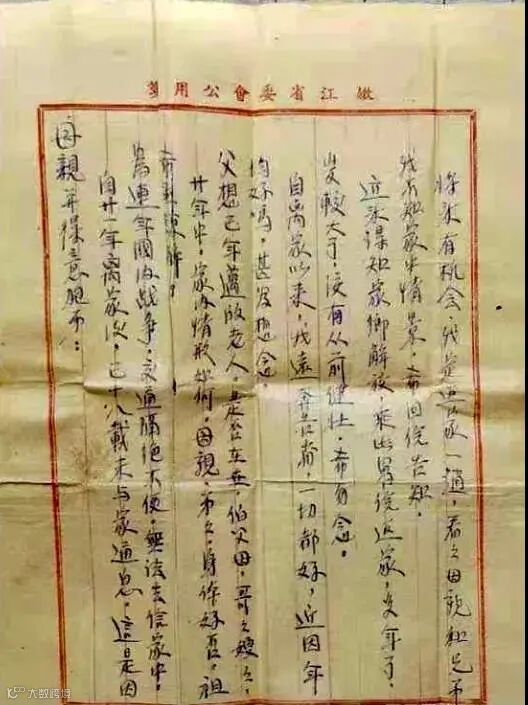 嫩江省委會公用箋
母親并得意胞弟:
自廿一年离家後,已十八載未与家通息,這是因
為連年國內战争,交通隔绝不便,無法去信家中,
希到諒解。
廿年中,家內情形如何,母親、弟々,身体好否,祖
父想已年邁 老人,是否在世,伯父母,哥々嫂々,
均好嗎,甚为想念。
自离家以来,我远奔各省,一切都好,近因年
岁較大了,没有从前健壮,希勿念。
近来得知家鄉解放,乘此 信返家,多年了,
我不知家中情景,希回信告知。
将来有机会,我定返家一趟,看々母親和兄弟
大数跨境